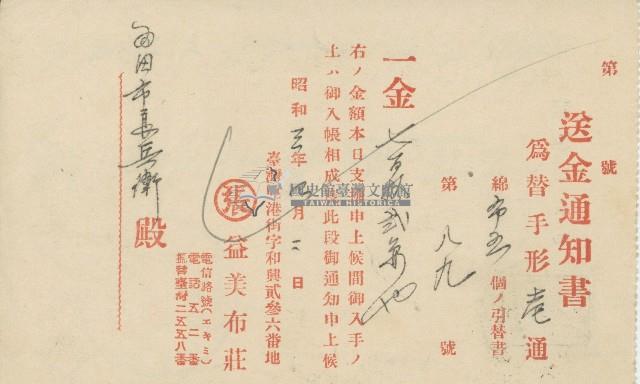 第　號
送金通知書
爲替手形壱通
綿布五個ノ引替書
第八九號
一金七百　弐　也
右ノ金額本日支　申上候間御入手ノ
上ハ御入帳相成　此段御通知申上候
昭和三年　月二日
臺灣　港街字和興貳參六番地
張 益美布莊
電信略號(エキミ)
電話五二番
振替臺灣二五五八番
田市兵衛 殿
國史館臺灣文獻館
TAIWAN HISTORICA